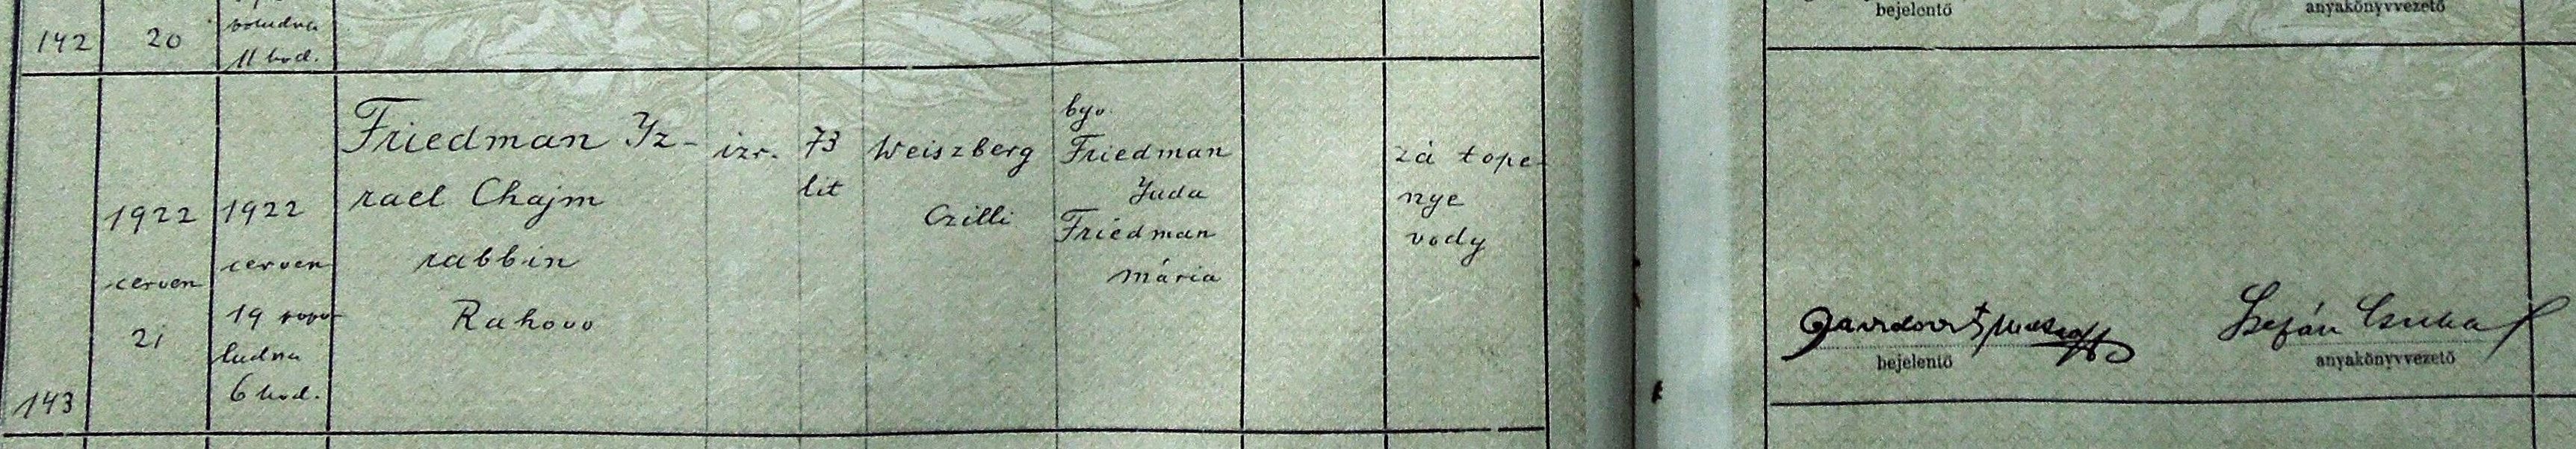 142
20
11 hod.
bejelentő
anyakönyvvezető
143
1922
cerven
21
1922
cerven
19 popo-
ludnu
6 hod.
Friedman Iz-
rael Chajm
rabbin
Rahovo
izr.
73
lit
Weiszberg
Czilli
byv.
Friedman
Juda
Friedman
mária
zá tope-
nye
vody
bejelentő
anyakönyvvezető